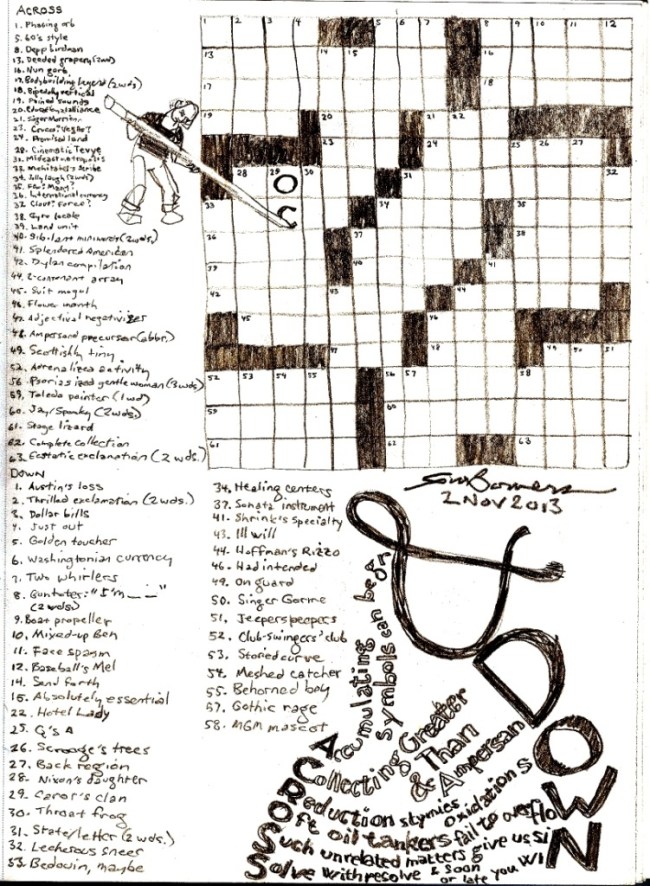 ACROSS
1. Phasing orb
5. 60's style
8. Depp birdman
13. Deeded property (2wds)
16. Nun garb
17. Bodybuilding legend (2wds)
18. Bipedally vertical
19. Pained sounds
20. Educational alliance
21. Singer Morrison
23.
24. Promised land
28. Cinematic Tevye
31. Mideast metropolis
33. Mehitabel's scribe
34. Jolly laugh (2wds)
35. Few? Many?
36. International currency
37. Clout? Force?
38. Gyro locale
39. Land unit
40. Sibilant (2wds.)
41. Splendored American
42. Dylan compilation
44. 2-consonant array
45. Suit mogul
46. Flower month
47. Adjectival negativizer
48. Ampersand precursor (abbr.)
49. Scottishly tiny
52. Adrenalized activity
56. Psoriasized gentlewoman (3wds)
59. Toledo pointer (1wd)
60. Jay/Spanky (2wds.)
61. Stage lizard
62. Complete collection
63. Ecstatic exclamation (2 wds.)
DOWN
1. Austin's loss
2. Thrilled exclamation (2wds.)
3. Dollar bills
4. Just out
5. Golden toucher
6. Washingtonian currency
7. Two whirlers
8. Guntoter: "I'm _ _"
(2 wds)
9. Boat propeller
10. Mixed-up Ben
11. Face spasm
12. Baseball's Mel
14. Send forth
15. Absolutely essential
22. Hotel Lady
25. Q's A
26. Scrooge's trees
27. Back region
28. Nixon's daughter
29. Caror's clan
30. Throat frog
31. State/letter (2wds.)
32. Lecherous sneer
33. Bedouin, maybe
34. Healing centers
37. Sonata instrument
41. Shrink's specialty
43. Ill will
44. Hoffman's Rizzo
46. Had intended
49. On guard
50. Singer Gorme
51. Jeepers peepers
52. Club-swingers' club
53. Storied curve
54. Meshed catcher
55. Behorned boy
57. Gothic rage
58. MGM mascot
1 2 3 4 5 6 7 8 9 10 11 12
13 14 15 16
17 18
19 20 21 22
23 24 25 26 27
28 29 30 31 32
O
C
33 34 35
36 37 38
39 40 41
42 43 44
45 46
47 48 49 50 51
52 53 54 55 56 57 58
59 60
61 62 63
2 NOV 2013
&
DOWN
ACROSS
Accumulating symbols can be
Collecting Greater
Than
& Ampersan
Reduction stymies oxidation s
Oft oil tankers fail to overflow
Such unrelated matters give us si
Solve with resolve & soon
or late you wi